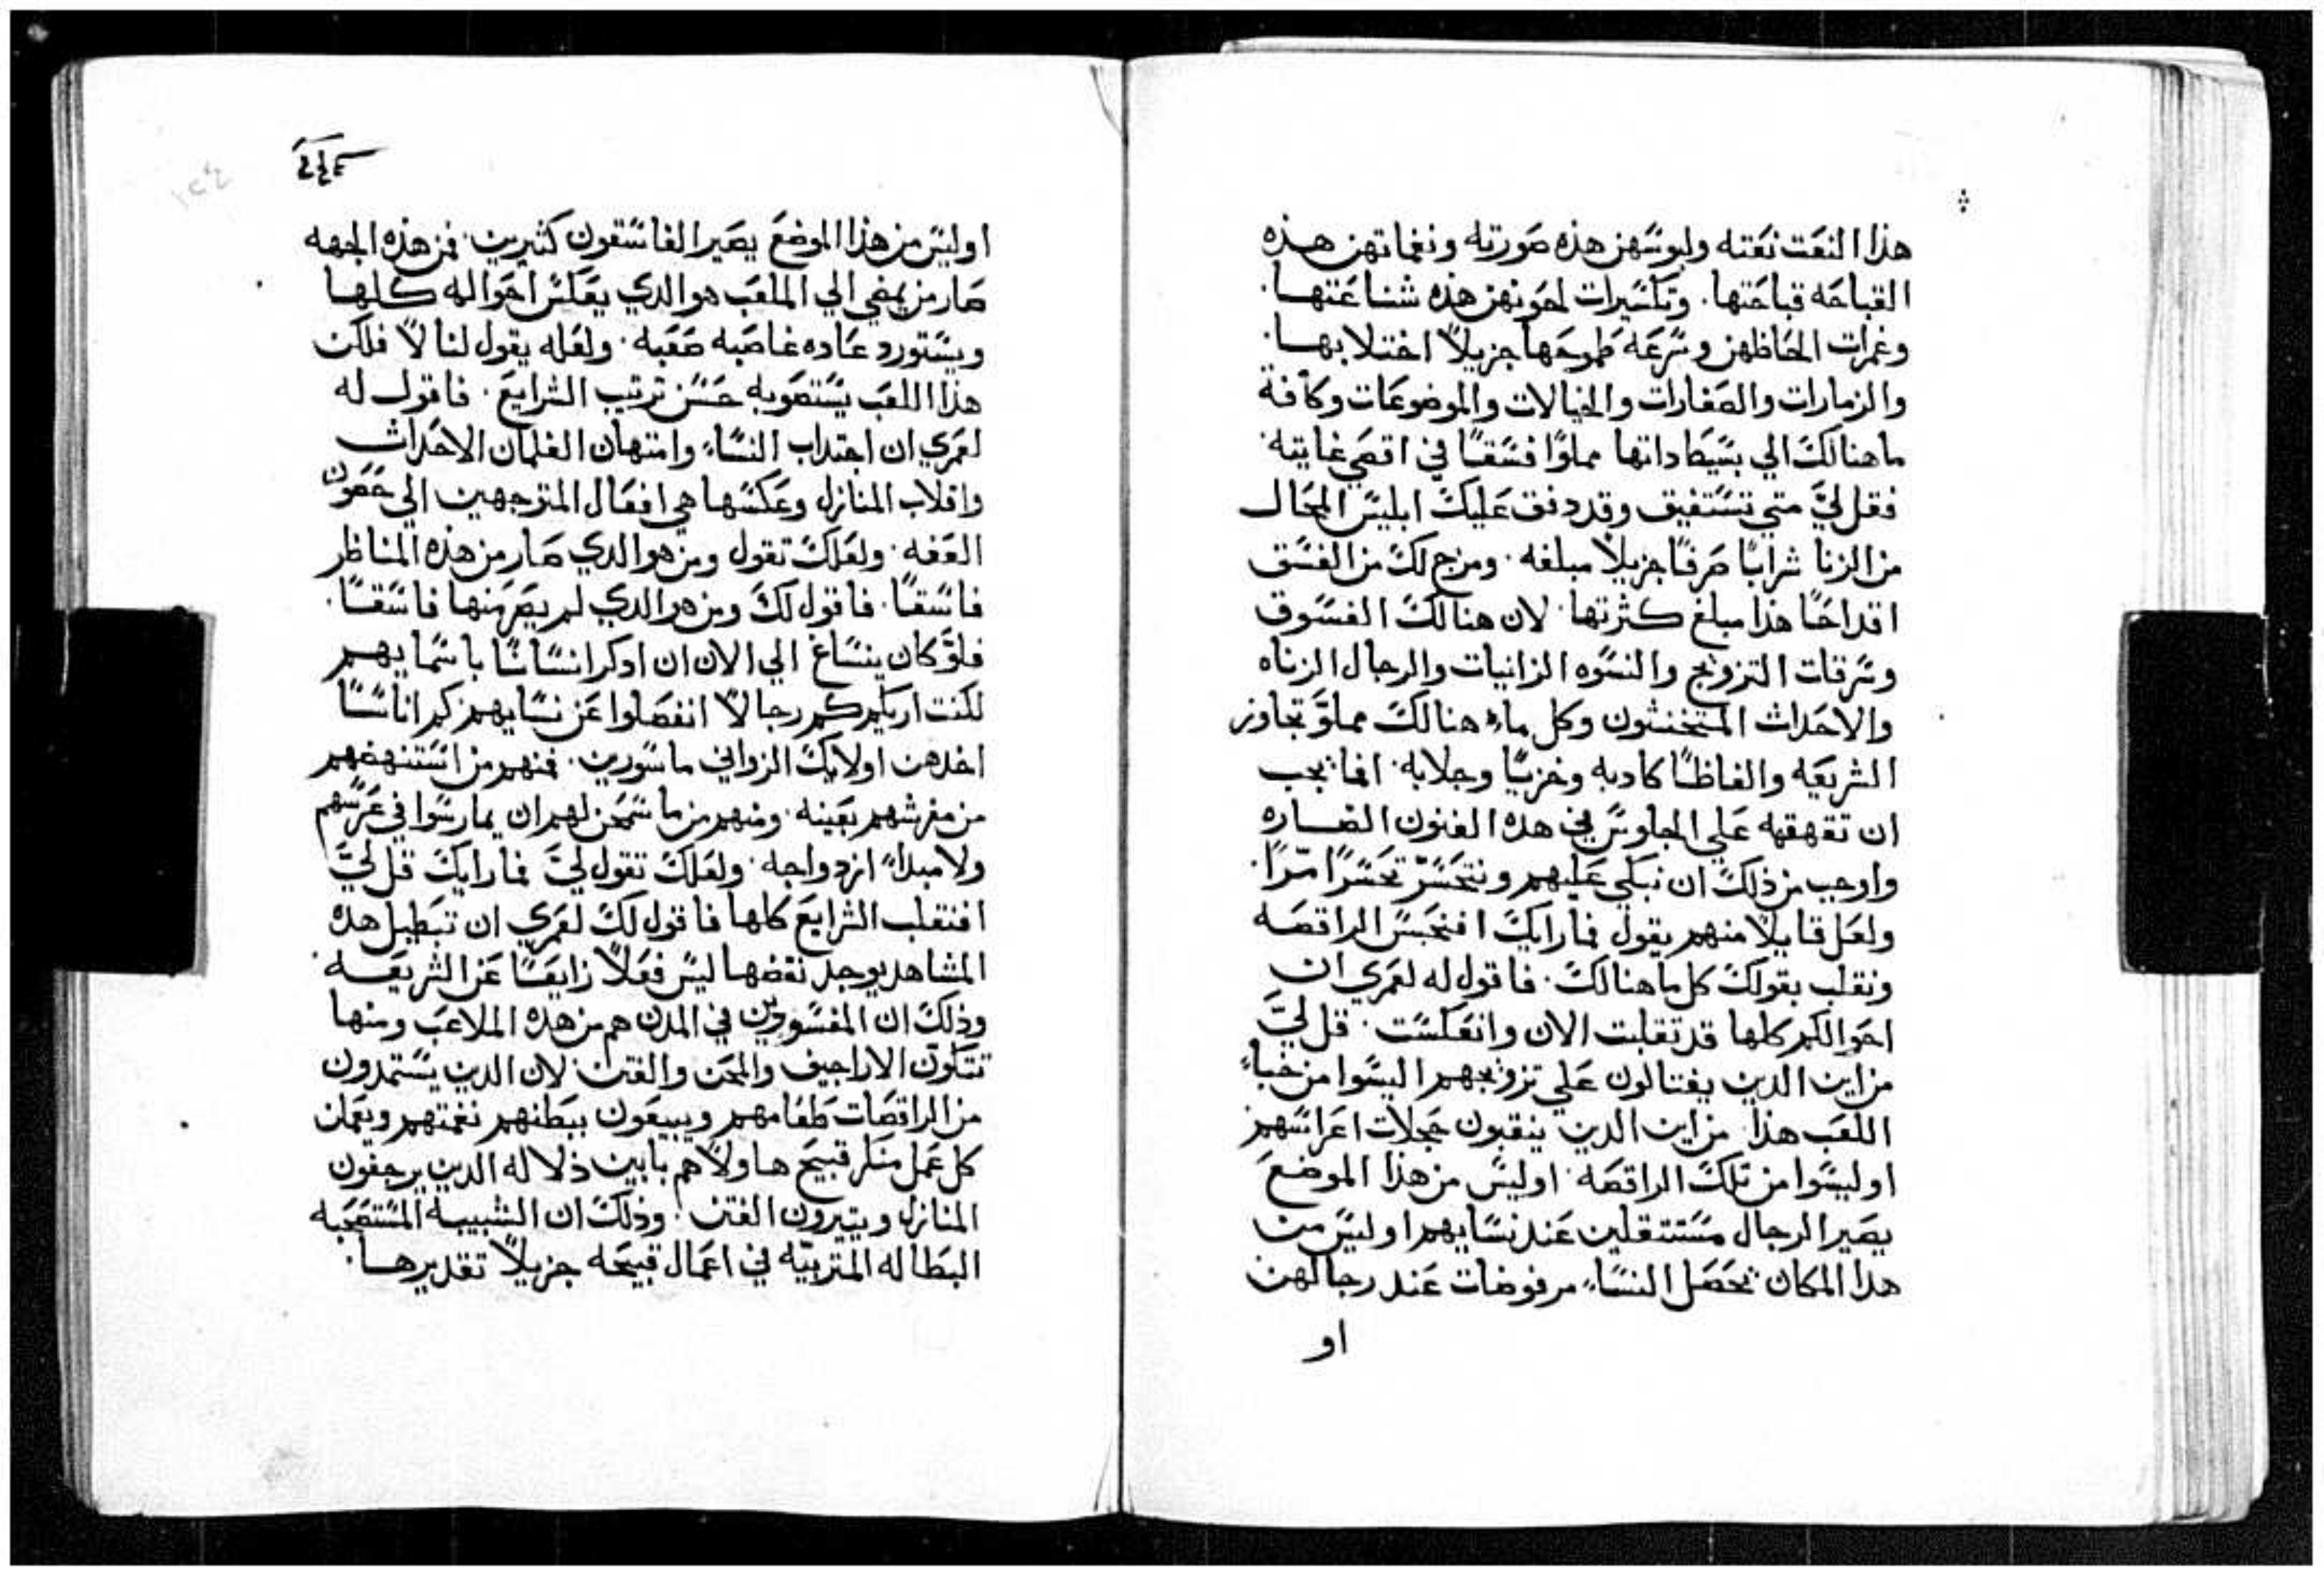 هذا النعت نعته ولبوسهن هذه صورته ونغماتهن هذه
القباحه قباحتها. وتكسيرات لحونهن هذه شناعتها.
وغمزات الحاظهن وسرعه طموحها جزيلاً اختلابها.
والزمارات والصفارات والخيالات والموضوعات وكافة
ما هنالك الي بسيطاداتها مملوًا فسقًا في اقصي غايته.
فقل ليَّ متي تستفيق وقد دفق عليك ابليس المحال
من الزنا شرابًا صرفًا جزيلاً مبلغه. ومزج لك من الفسق
اقداحًا هذا مبلغ كثرتها. لان هنالك الفسوق
وسرقات التزويج والنسوه الزانيات والرجال الزناه
والاحداث المتخنثون وكل ما هنالك مملوَّ تجاوز
الشريعه والفاظًا كادبه وخزيًا وجلابه. افما يجب
ان تقهقهه علي الجلوس في هده الفنون الضاره
واوجب من ذلك ان نبكي عليهم ونتحسّر تحسّرًا مّرًا.
ولعل قايلاً منهم يقول فما رايك افنحبس الراقصه
ونقلب بقولك كل ما هنالك. فاقول له لعمري ان
احوالكم كلها قد تقلبت الان وانعكست. قل ليَّ
من اين الدين يغتالون علي تزويجهم اليسوا من خباءِ
اللعب هذا. من اين الدين ينقبون حجلات اعراسهم
اوليسوا من تلك الراقصه. اوليس من هذا الموضع
يصير الرجال مستثقلين عند نسايهم اوليس من
هدا المكان تحصل النساء مرفوضات عند رجالهن
او
اوليس من هذا الموضع يصير الفاسقون كثيرين. فمن هذه الجهه
صار من يمضي الي الملعب هو الدي يعكس احواله كلها
ويستورد عاده غاصبه صعبه. ولعله يقول لنا لا فلكن
هذا اللعب يستصوبه حسن ترتيب الشرايع. فاقول له
لعمري ان اجتداب النساء وامتهان الغلمان الاحداث
واقلاب المنازل وعكسها هي افعال المتوجهين الي حصون
العفه. ولعلك تقول ومن هو الدي صار من هذه المناظر
فاسقًا. فاقول لك ومن هو الدي لم يصر منها فاسقًا.
فلوَ كان ينساغ الي الان ان ادكر انساسًا باسمايهم
لكنت اريكم كم رجالاً انفصلوا عن نسايهم. كم اناسًا
اخدهن اولايك الزواني ماسورين. فمنهم من استنهضهم
من مفرشهم بعينه. ومنهم من ما سمحن لهم ان يمارسوا في عرسهم
ولا مبداءَ ازدواجه. ولعلك تقول ليَّ فما رايك قل ليَّ
افنقلب الشرايع كلها فاقول لك لعمري ان تبطيل هده
المشاهد يوجد نقضها ليس فعلاً زايغًا عن الشريعه.
وذلك ان المفسودين في المدن هم من هده الملاعب ومنها
تتكوّن الاراجيف والمحن والفتن. لان الدين يستمدون
من الراقصات طعامهم ويبيعون ببطنهم نغمتهم ويعملن
كل عمل منكر قبيح هاولاهم باين ذلاله الدين يرجفون
المنازل ويتيرون الفتن. وذلك ان الشبيبه المستصحبه
البطاله المتربيّه في اعمال قبيحه جزيلاً تقديرها.